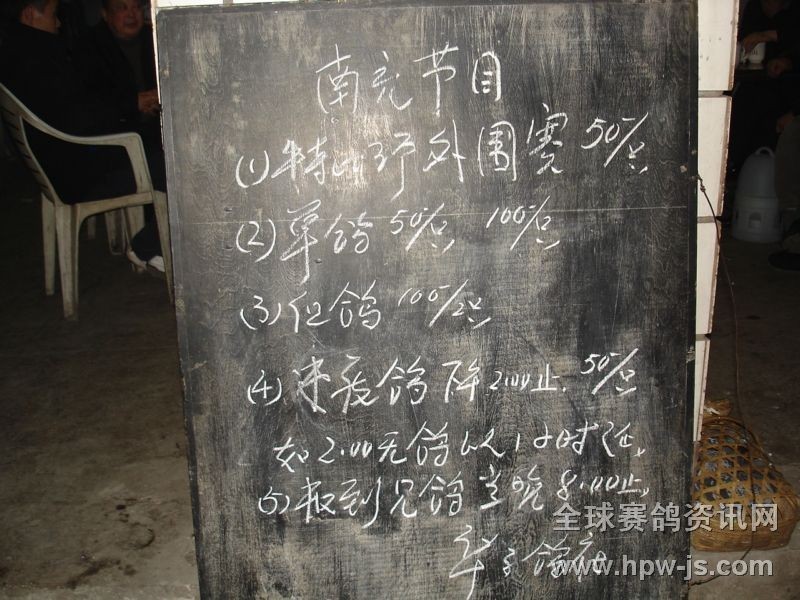 南充节目
(1) 特比环外围赛 50/只
(2) 单鸽 50/只 100/只
(3) 但鸽 100/只
(4) 来夜鸽 下午 2:00止. 50/只
如2.00无鸽以1小时延,
(5) 报到兄鸽当晚8.00止,
鸽社
全球赛鸽资讯网
www.hpw-js.com